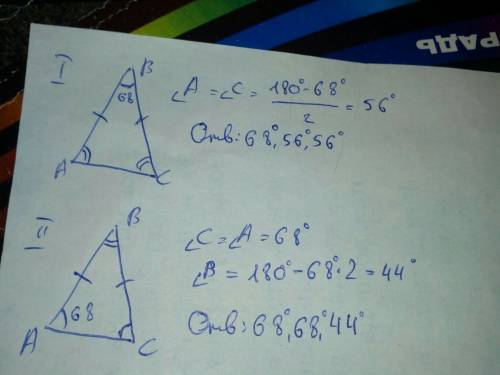 РАДЬ
I
B
68
A
C
∠A = ∠C = (180° - 68°)/2 = 56°
Отв: 68°, 56°, 56°
II
B
68
A
C
∠C = ∠A = 68°
∠B = 180° - 68° · 2 = 44°
Отв: 68°, 68°, 44°